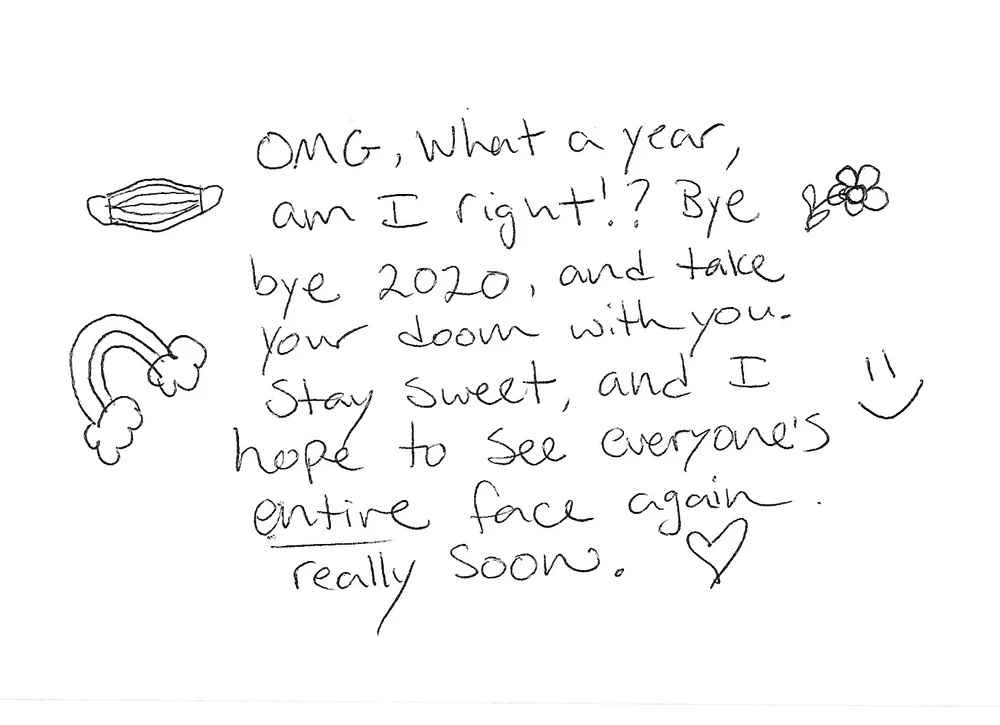 OMG, What a year,
am I right!? Bye
bye 2020, and take
your doom with you.
Stay sweet, and I
hope to see everyone's
entire face again
really soon.